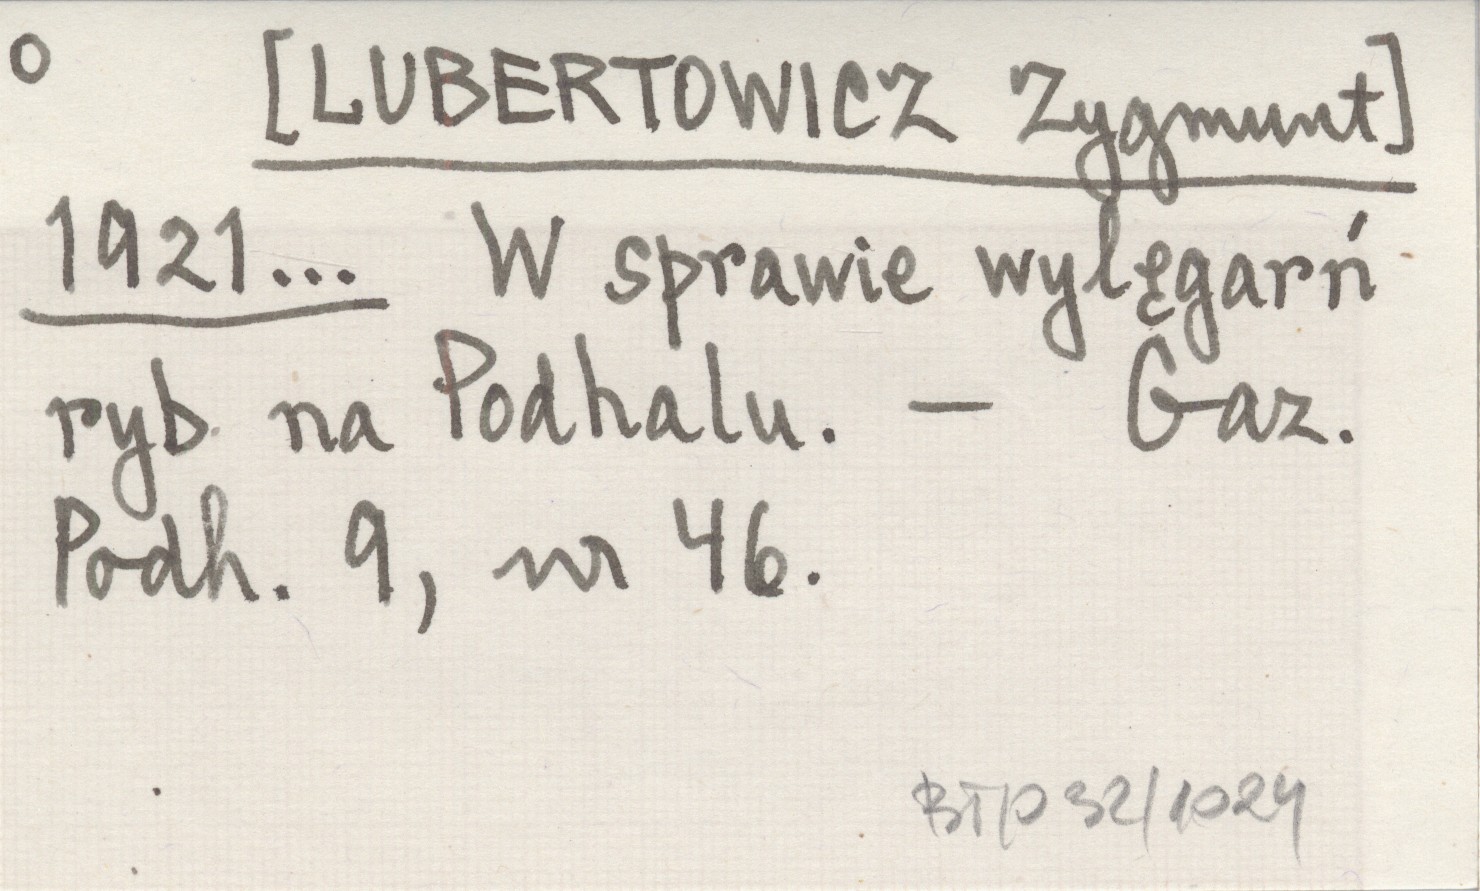 o [LUBERTOWICZ Zygmunt]
1921... W sprawie wylęgarń
ryb na Podhalu. — Gaz.
Podh. 9, nr 46.
BTP 32/1024